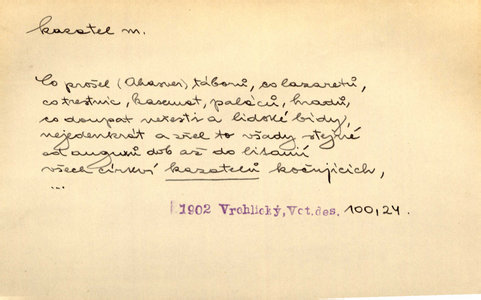 kazatel m.
Co prošel (Ahasver) táborů, co lazaretů,
co trestnic, kasemat, paláců, hradů,
co doupat neřesti a lidské bídy,
nejedenkrát a zřel to všady stejné
od augurů dob až do litanií
všech církví kazatelů kočujících,
...
1902 Vrchlický, Vet.des. 100,24.